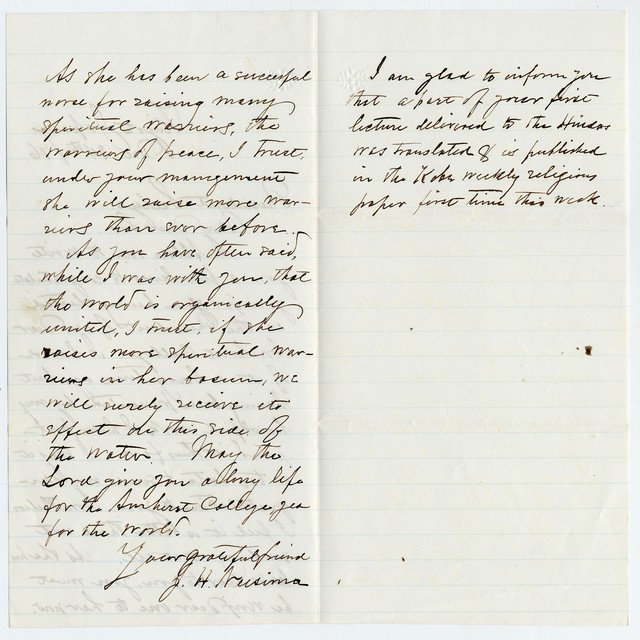 As she has been a successful
nurse for raising many
spiritual warriors, the
warriors of peace, I trust,
under your management
she will raise more war-
riors than ever before.
As you have often said,
while I was with you, that
the world is organically
united, I trust, if she
raises more spiritual war-
riors in her bosum, we
will surely receive its
effect on this side of
the water. May the
Lord give you a long life
for the Amherst College, yea
for the world.
Your grateful friend
J. H. Neesima
I am glad to inform you
that a part of your first
lecture delivered to the Hindoos
was translated & is published
in the Kobe weekly religious
paper first time this week.